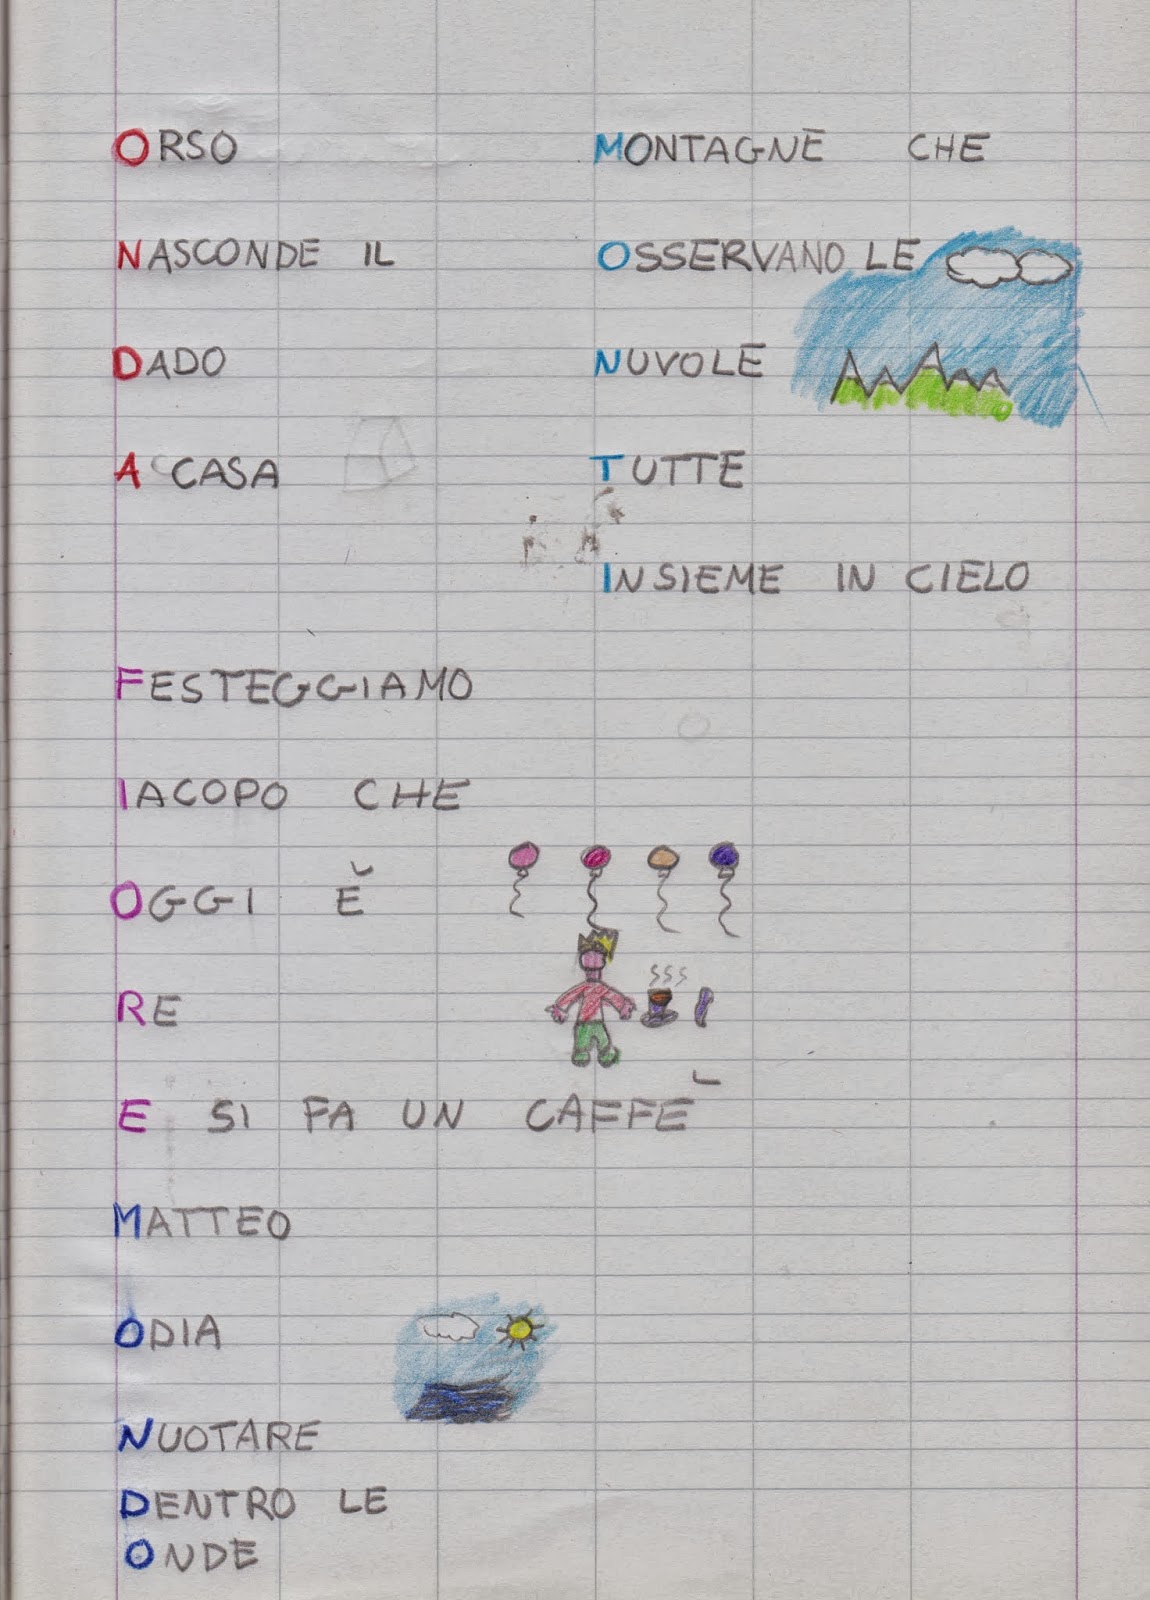 ORSO
NASCONDE IL
DADO
A CASA
MONTAGNE CHE
OSSERVANO LE
NUVOLE
TUTTE
INSIEME IN CIELO
FESTEGGIAMO
IACOPO CHE
OGGI È
RE
E SI FA UN CAFFÈ
MATTEO
ODIA
NUOTARE
DENTRO LE
ONDE